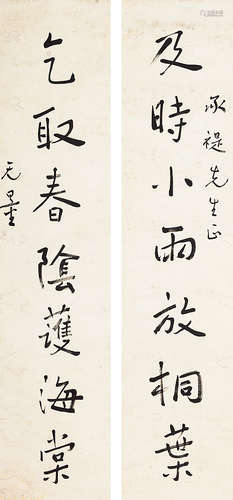 及時小雨放桐葉
承禔先生正
乞取春陰護海棠
无量